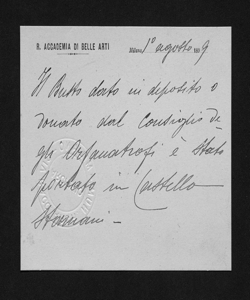 R. ACCADEMIA DI BELLE ARTI
Milano, 1º agosto 1889
Il Busto dato in deposito o
donato dal Consiglio de-
gli Orfanatrofi è stato
portato in Castello
stamani –